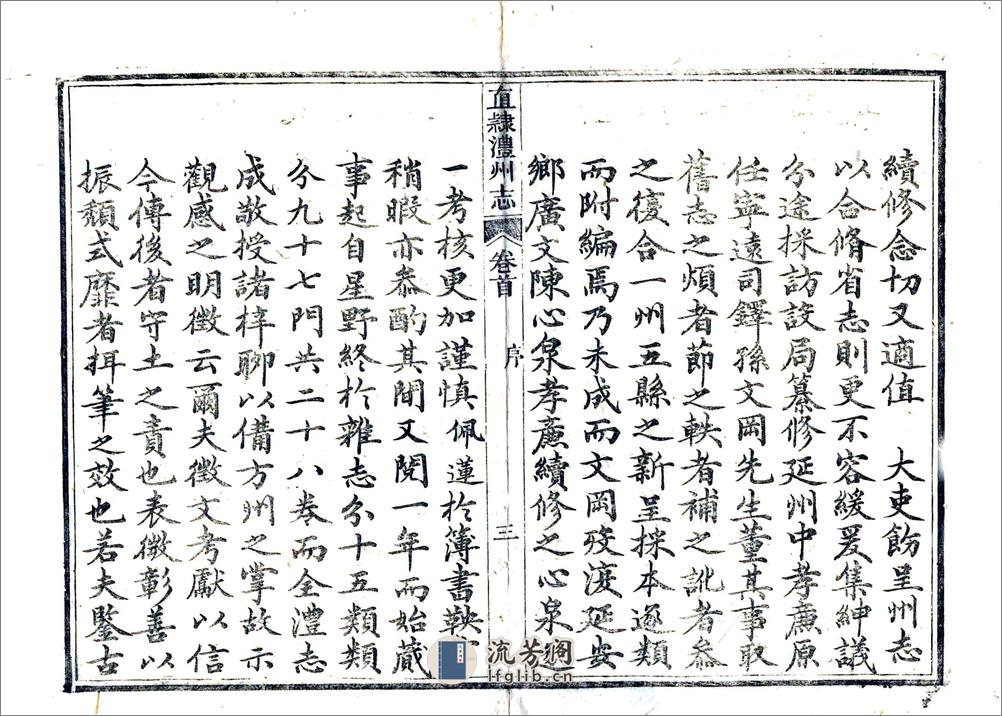 續修念切又適值　大吏飭呈州志
以合脩省志則更不容緩爰集紳議
分途採訪設局纂修延州中孝廉原
任寧遠司鐸孫文岡先生董其事取
舊志之煩者節之軼者補之訛者叅
之復合一州五縣之新呈採本逐類
而附編焉乃未成而文岡歿渡延安
鄉廣文陳心泉孝廉續修之心泉
直隸澧州志
卷首
序
三
一考核更加謹慎佩蓮於簿書鞅
稍暇亦叅酌其間又閱一年而始蕆
事起自星野終於雜志分十五類類
分九十七門共二十八卷而全澧志
成敬授諸梓聊以備方州之掌故示
觀感之明徵云爾夫徵文考獻以信
今傳後者守土之責也表微彰善以
振頹式靡者揖筆之效也若夫鑒古
流芳阁
lfglib.cn